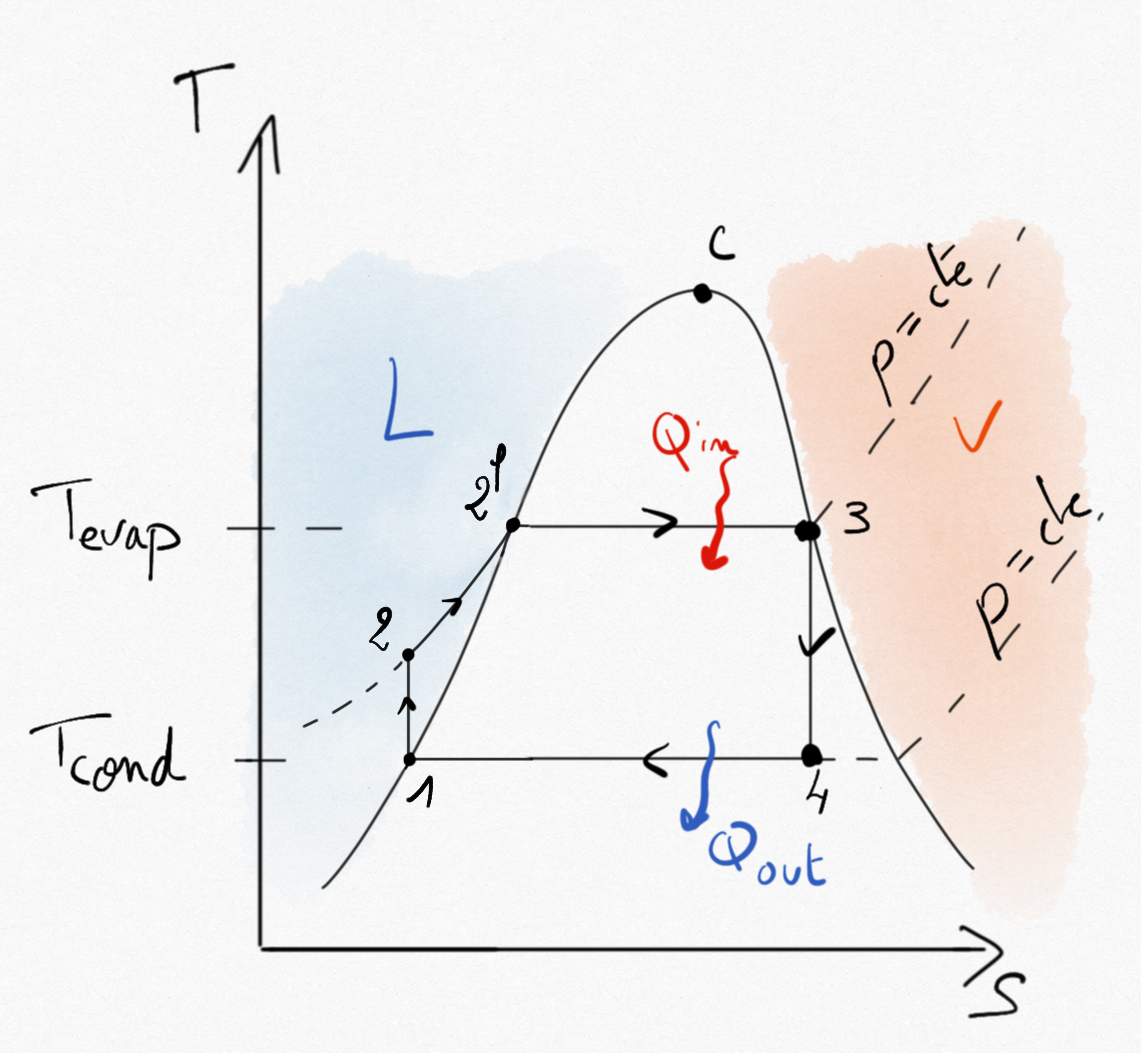 T
C
p = cte
L
V
Qin
2'
Tevap
3
p = cte.
2
Tcond
1
4
Qout
S